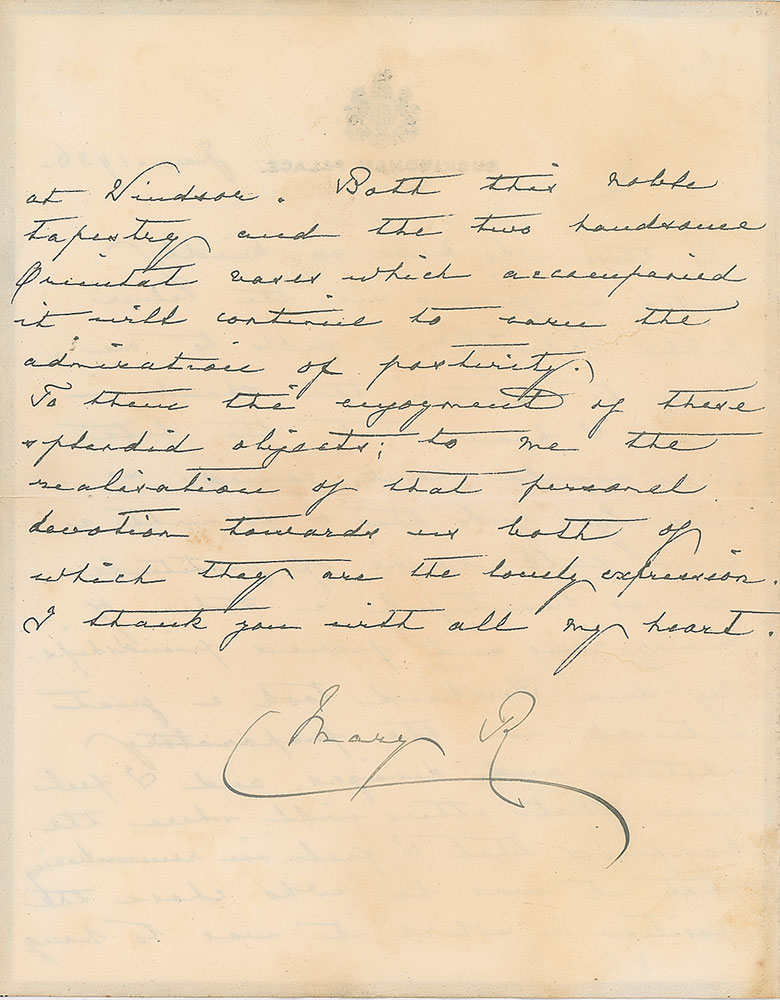 BUCKINGHAM PALACE
at Windsor. Both this noble
tapestry and the two handsome
Oriental vases which accompanied
it will continue to earn the
admiration of posterity.
To them the enjoyment of these
splendid objects; to me the
realisation of that personal
devotion towards us both of
which they are the lovely expression.
I thank you with all my heart.
Mary R